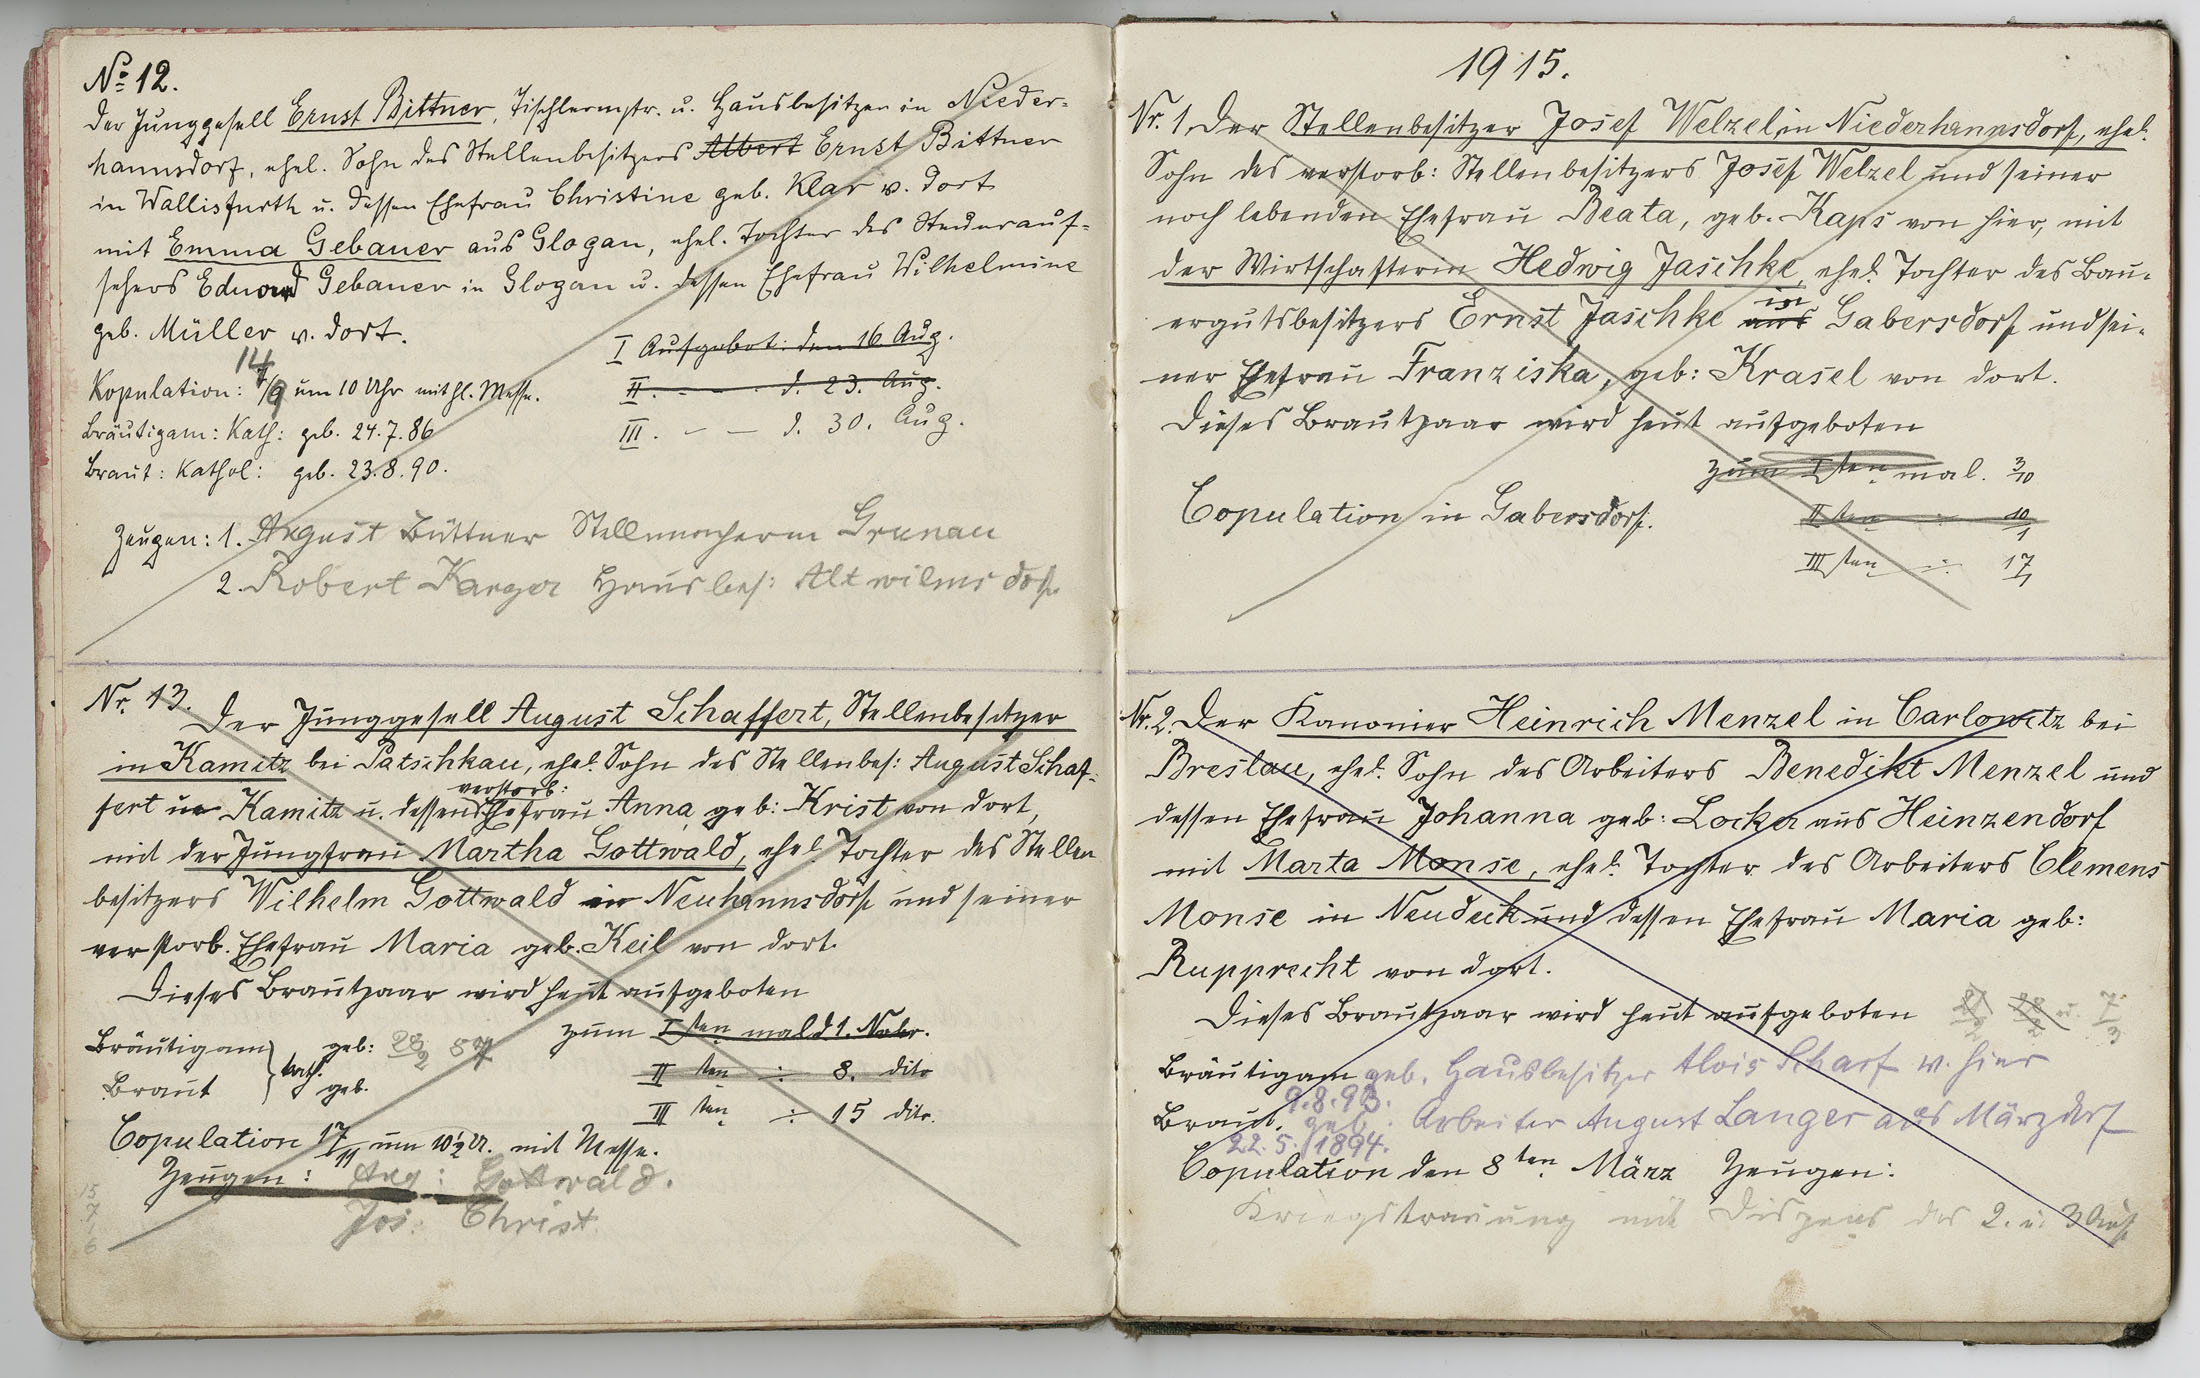 No 12.
Der Junggesell Ernst Bittner, Tischlermstr. u. Hausbesitzer in Nieder-
hannsdorf, ehel. Sohn des Stellenbesitzers Albert Ernst Bittner
in Wallisfurth u. dessen Ehefrau Christine geb. Klar v. dort
mit Emma Gebauer aus Glogau, ehel. Tochter des Steuerauf-
sehers Eduard Gebauer in Glogau u. dessen Ehefrau Wilhelmine
geb. Müller v. dort.
I Aufgebot: den 16 Aug.
II. - - - d. 23. Aug.
III. - - d. 30. Aug.
Kopulation: 14/9 um 10 Uhr mit hl. Messe.
Bräutigam: Kath: geb. 24.7.86
Braut: Kathol: geb. 23.8.90.
Zeugen: 1. August Büttner Stellmacherm Grunau
2. Robert Karger Hausbes: Altwilmsdorf
Nr. 13.
Der Junggesell August Schaffert, Stellenbesitzer
in Kamitz bei Patschkau, ehel. Sohn des Stellenbes: August Schaf-
fert in Kamitz u. dessen verstorb: Ehefrau Anna, geb: Krist von dort,
mit der Jungfrau Martha Gottwald, ehel. Tochter des Stellen
besitzers Wilhelm Gottwald in Neuhannsdorf und seiner
verstorb. Ehefrau Maria geb. Keil von dort.
Dieses Brautpaar wird heut aufgeboten
zum Iten mal d 1. Nobr.
II ten ÷ 8. dito
III ten ÷ 15 dito.
Bräutigam geb: 28/2 87
kath.
Braut geb.
Copulation 17/11 um 10½ U. mit Messe.
Zeugen: Aug: Gottwald.
Jos: Christ
15
7
1
6
1915.
Nr. 1. Der Stellenbesitzer Josef Welzel in Niederhannsdorf, ehel.
Sohn des verstorb: Stellenbesitzers Josef Welzel und seiner
noch lebenden Ehefrau Beata, geb. Kaps von hier, mit
der Wirtschafterin Hedwig Jaschke, ehel. Tochter des Bau-
ergutsbesitzers Ernst Jaschke aus in Gabersdorf und sei-
ner Ehefrau Franziska, geb: Krasel von dort.
Dieses Brautpaar wird heut aufgeboten
zum Iten mal. 3/10
II ten ÷ 10/1
III ten ÷ 17/1
Copulation in Gabersdorf.
Nr. 2. Der Kanonier Heinrich Menzel in Carlowitz bei
Breslau, ehel. Sohn des Arbeiters Benedikt Menzel und
dessen Ehefrau Johanna geb: Locker aus Heinzendorf
mit Marta Monse, ehel. Tochter des Arbeiters Clemens
Monse in Neudeck und dessen Ehefrau Maria geb:
Rupprecht von dort.
Dieses Brautpaar wird heut aufgeboten 21/2 28/2 u. 7./3
Bräutigam geb. Hausbesitzer Alois Scharf v. hier
9.8.93.
Braut. geb. Arbeiter August Langer aus Märzdorf
22.5.1894.
Copulation den 8ten März Zeugen:
Kriegstrauung mit Dispens des 2. u. 3 Auf.